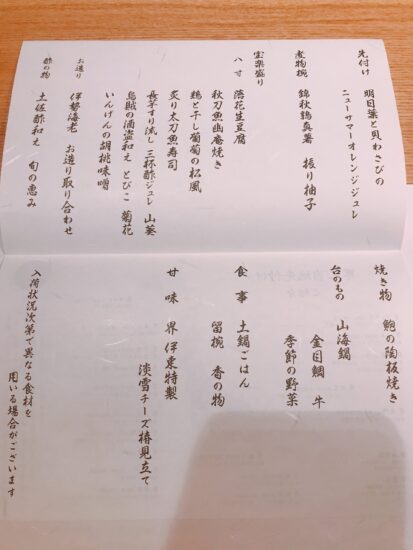 先付け 明日葉と貝わさびの
ニューサマーオレンジジュレ
煮物椀 錦秋鶏真薯 振り柚子
宝楽盛り
八寸 落花生豆腐
秋刀魚幽庵焼き
鶏と干し葡萄の松風
炙り太刀魚寿司
長芋すり流し 三杯酢ジュレ 山葵
烏賊の酒盗和え とびこ 菊花
いんげんの胡桃味噌
お造り 伊勢海老 お造り取り合わせ
酢の物 土佐酢和え 旬の恵み
焼き物 鮑の陶板焼き
台のもの 山海鍋
金目鯛 牛
季節の野菜
食事 土鍋ごはん
留椀 香の物
甘味 界 伊東特製
淡雪チーズ椿見立て
入荷状況次第で異なる食材を
用いる場合がございます